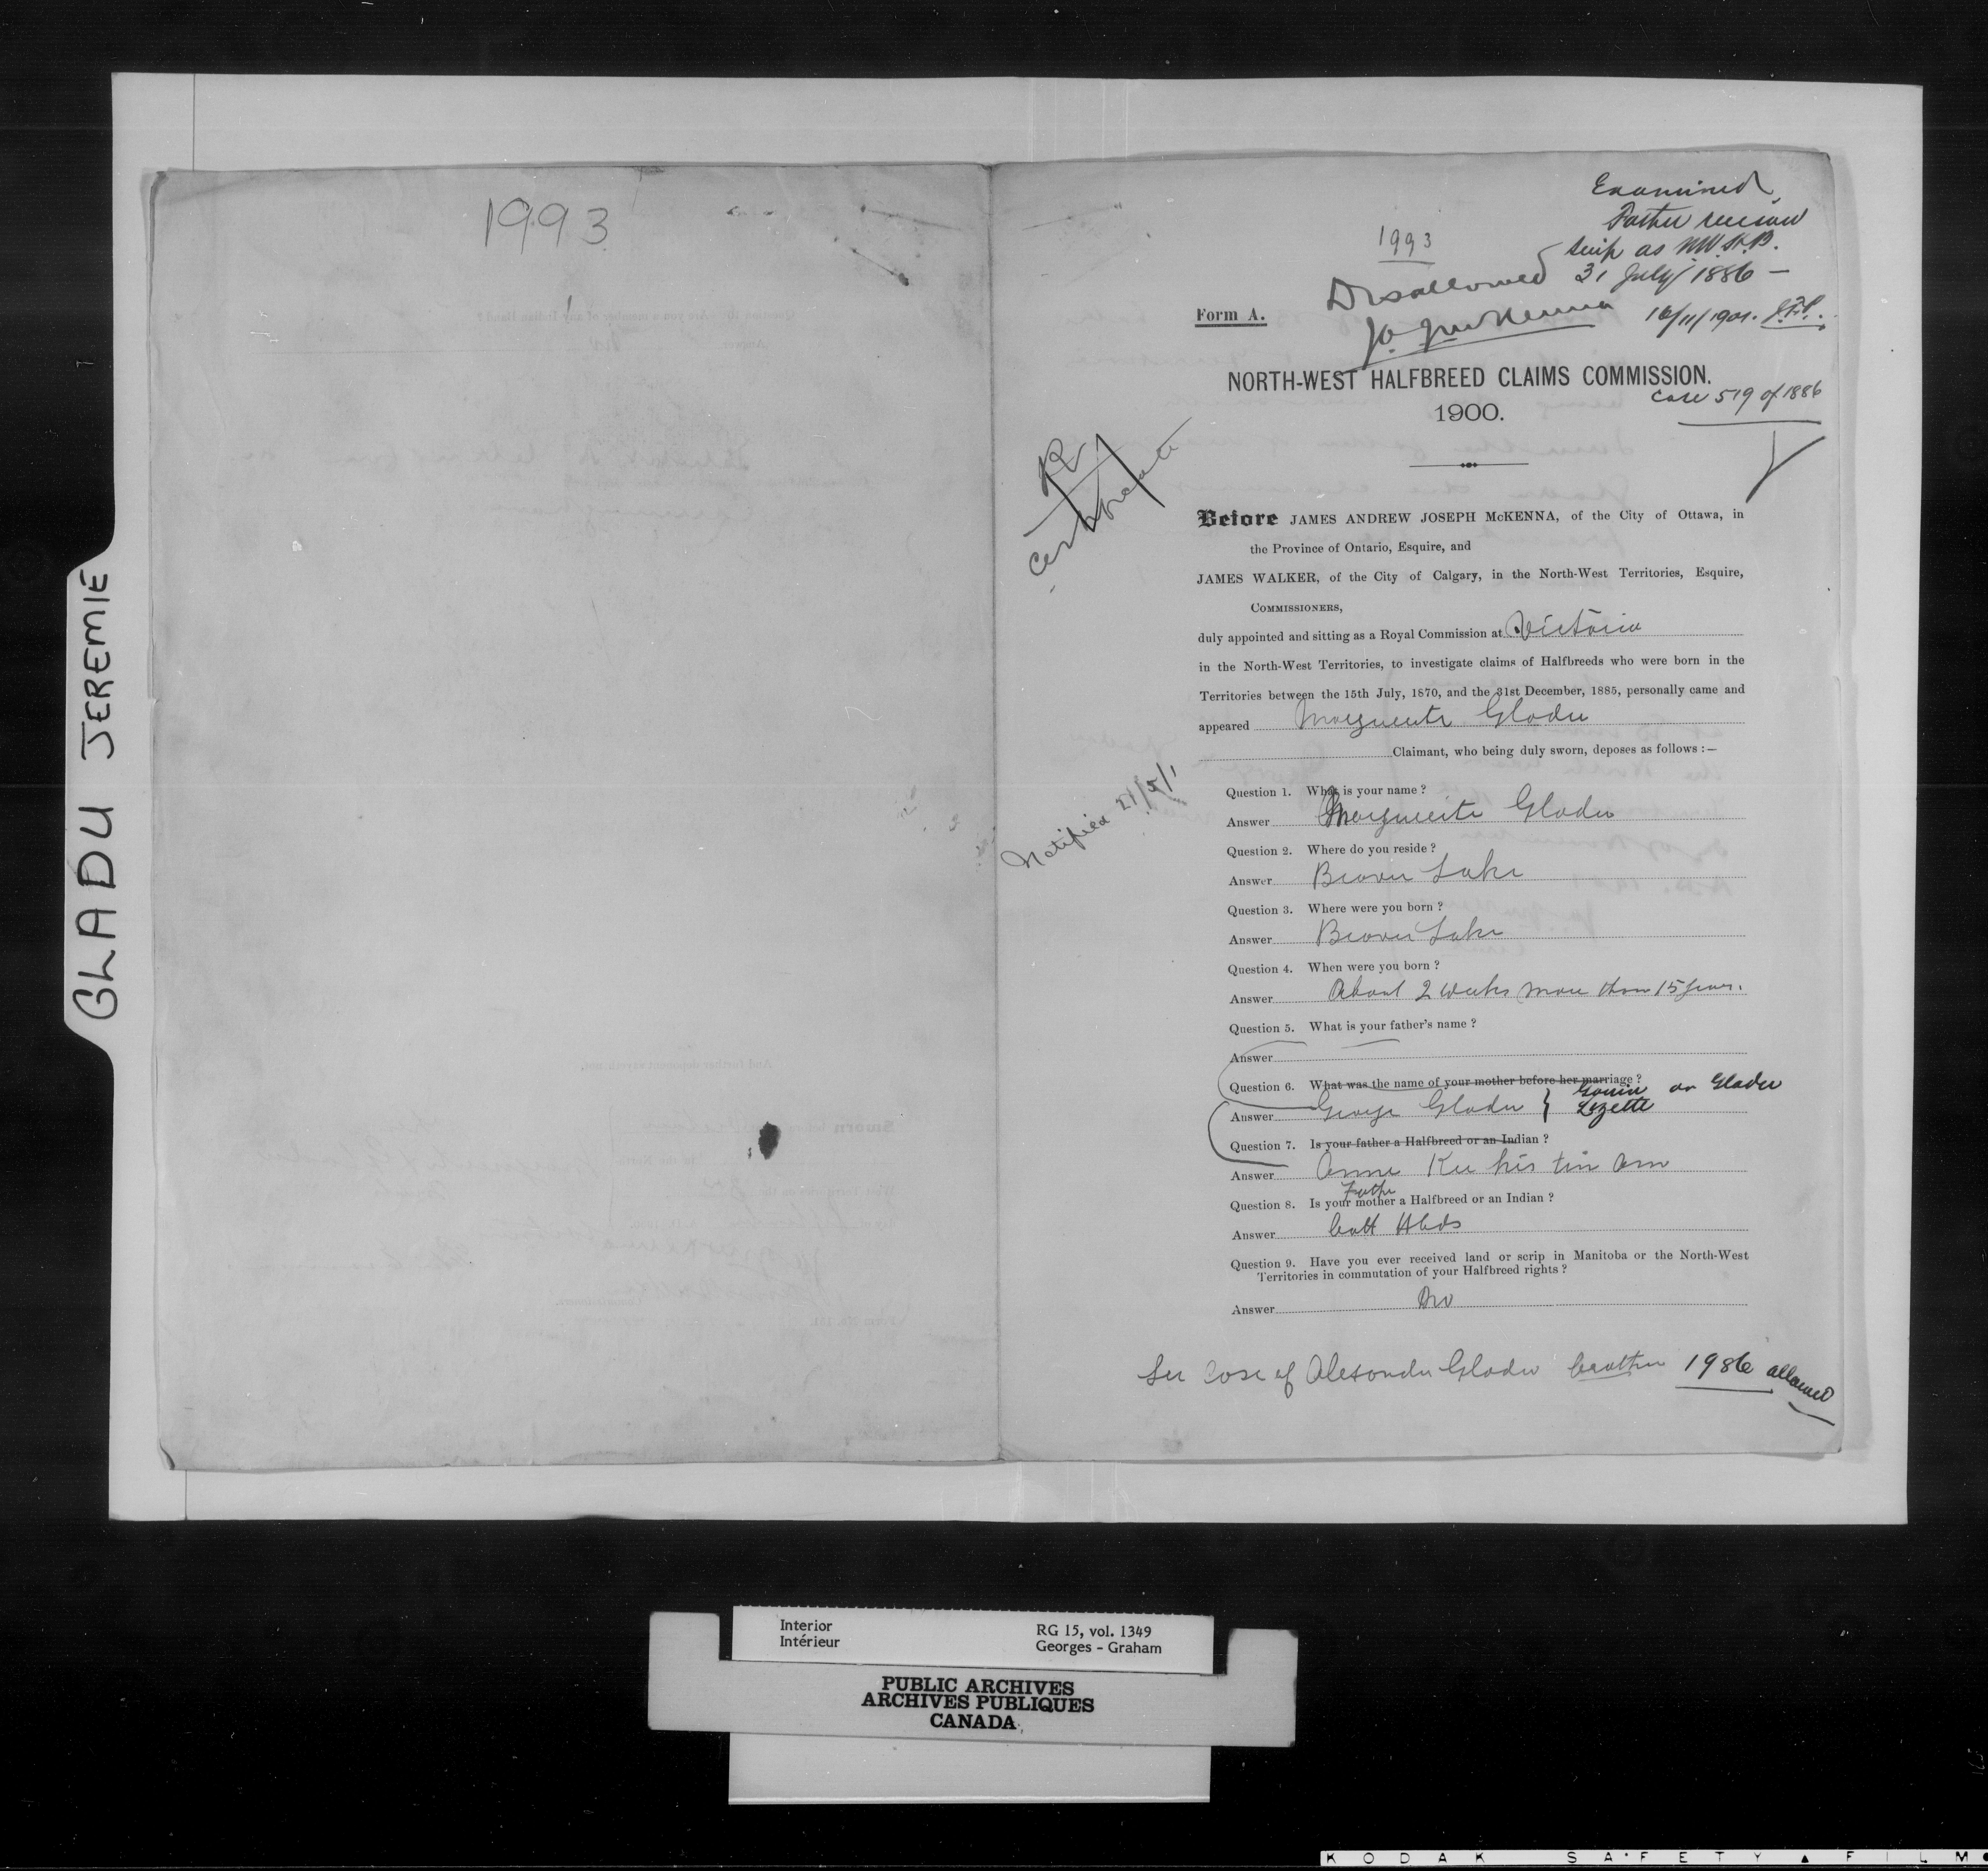 GLADU JEREMIE
1993
Examined
Father receive
scrip as N.W.H.B.
31 July 1886 —
16/11/1901.
1993
Disallowed
J A J McKenna
Form A.
NORTH-WEST HALFBREED CLAIMS COMMISSION.
Case 519 of 1886
1900.
R
Certificate
Before JAMES ANDREW JOSEPH McKENNA, of the City of Ottawa, in
the Province of Ontario, Esquire, and
JAMES WALKER, of the City of Calgary, in the North-West Territories, Esquire,
COMMISSIONERS,
duly appointed and sitting as a Royal Commission at Victoria
in the North-West Territories, to investigate claims of Halfbreeds who were born in the
Territories between the 15th July, 1870, and the 31st December, 1885, personally came and
appeared Marguerite Gladu
Claimant, who being duly sworn, deposes as follows :—
Notified 21/5/1
Question 1. What is your name ?
Answer Marguerite Gladu
Question 2. Where do you reside ?
Answer Beaver Lake
Question 3. Where were you born ?
Answer Beaver Lake
Question 4. When were you born ?
Answer About 2 weeks more than 15 years.
Question 5. What is your father's name ?
Answer
Question 6. What was the name of your mother before her marriage ?
Answer George Gladu } Gouin or Gladu
Lizette
Question 7. Is your father a Halfbreed or an Indian ?
Answer Anne Kee his tin am
Father
Question 8. Is your mother a Halfbreed or an Indian ?
Answer Both Hbds
Question 9. Have you ever received land or scrip in Manitoba or the North-West
Territories in commutation of your Halfbreed rights ?
Answer No
See Case of Alexander Gladu brother 1986 allowed
Interior
Intérieur
RG 15, vol. 1349
Georges - Graham
PUBLIC ARCHIVES
ARCHIVES PUBLIQUES
CANADA
KODAK SAFETY ▲ FILM